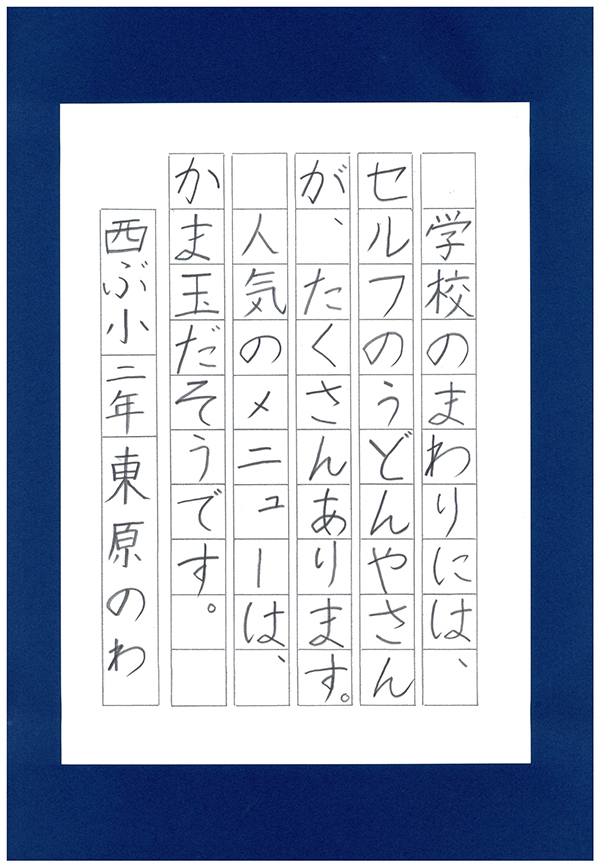 学校のまわりには、
セルフのうどんやさん
が、たくさんあります。
人気のメニューは、
かま玉だそうです。
西ぶ小 二年 東原のわ